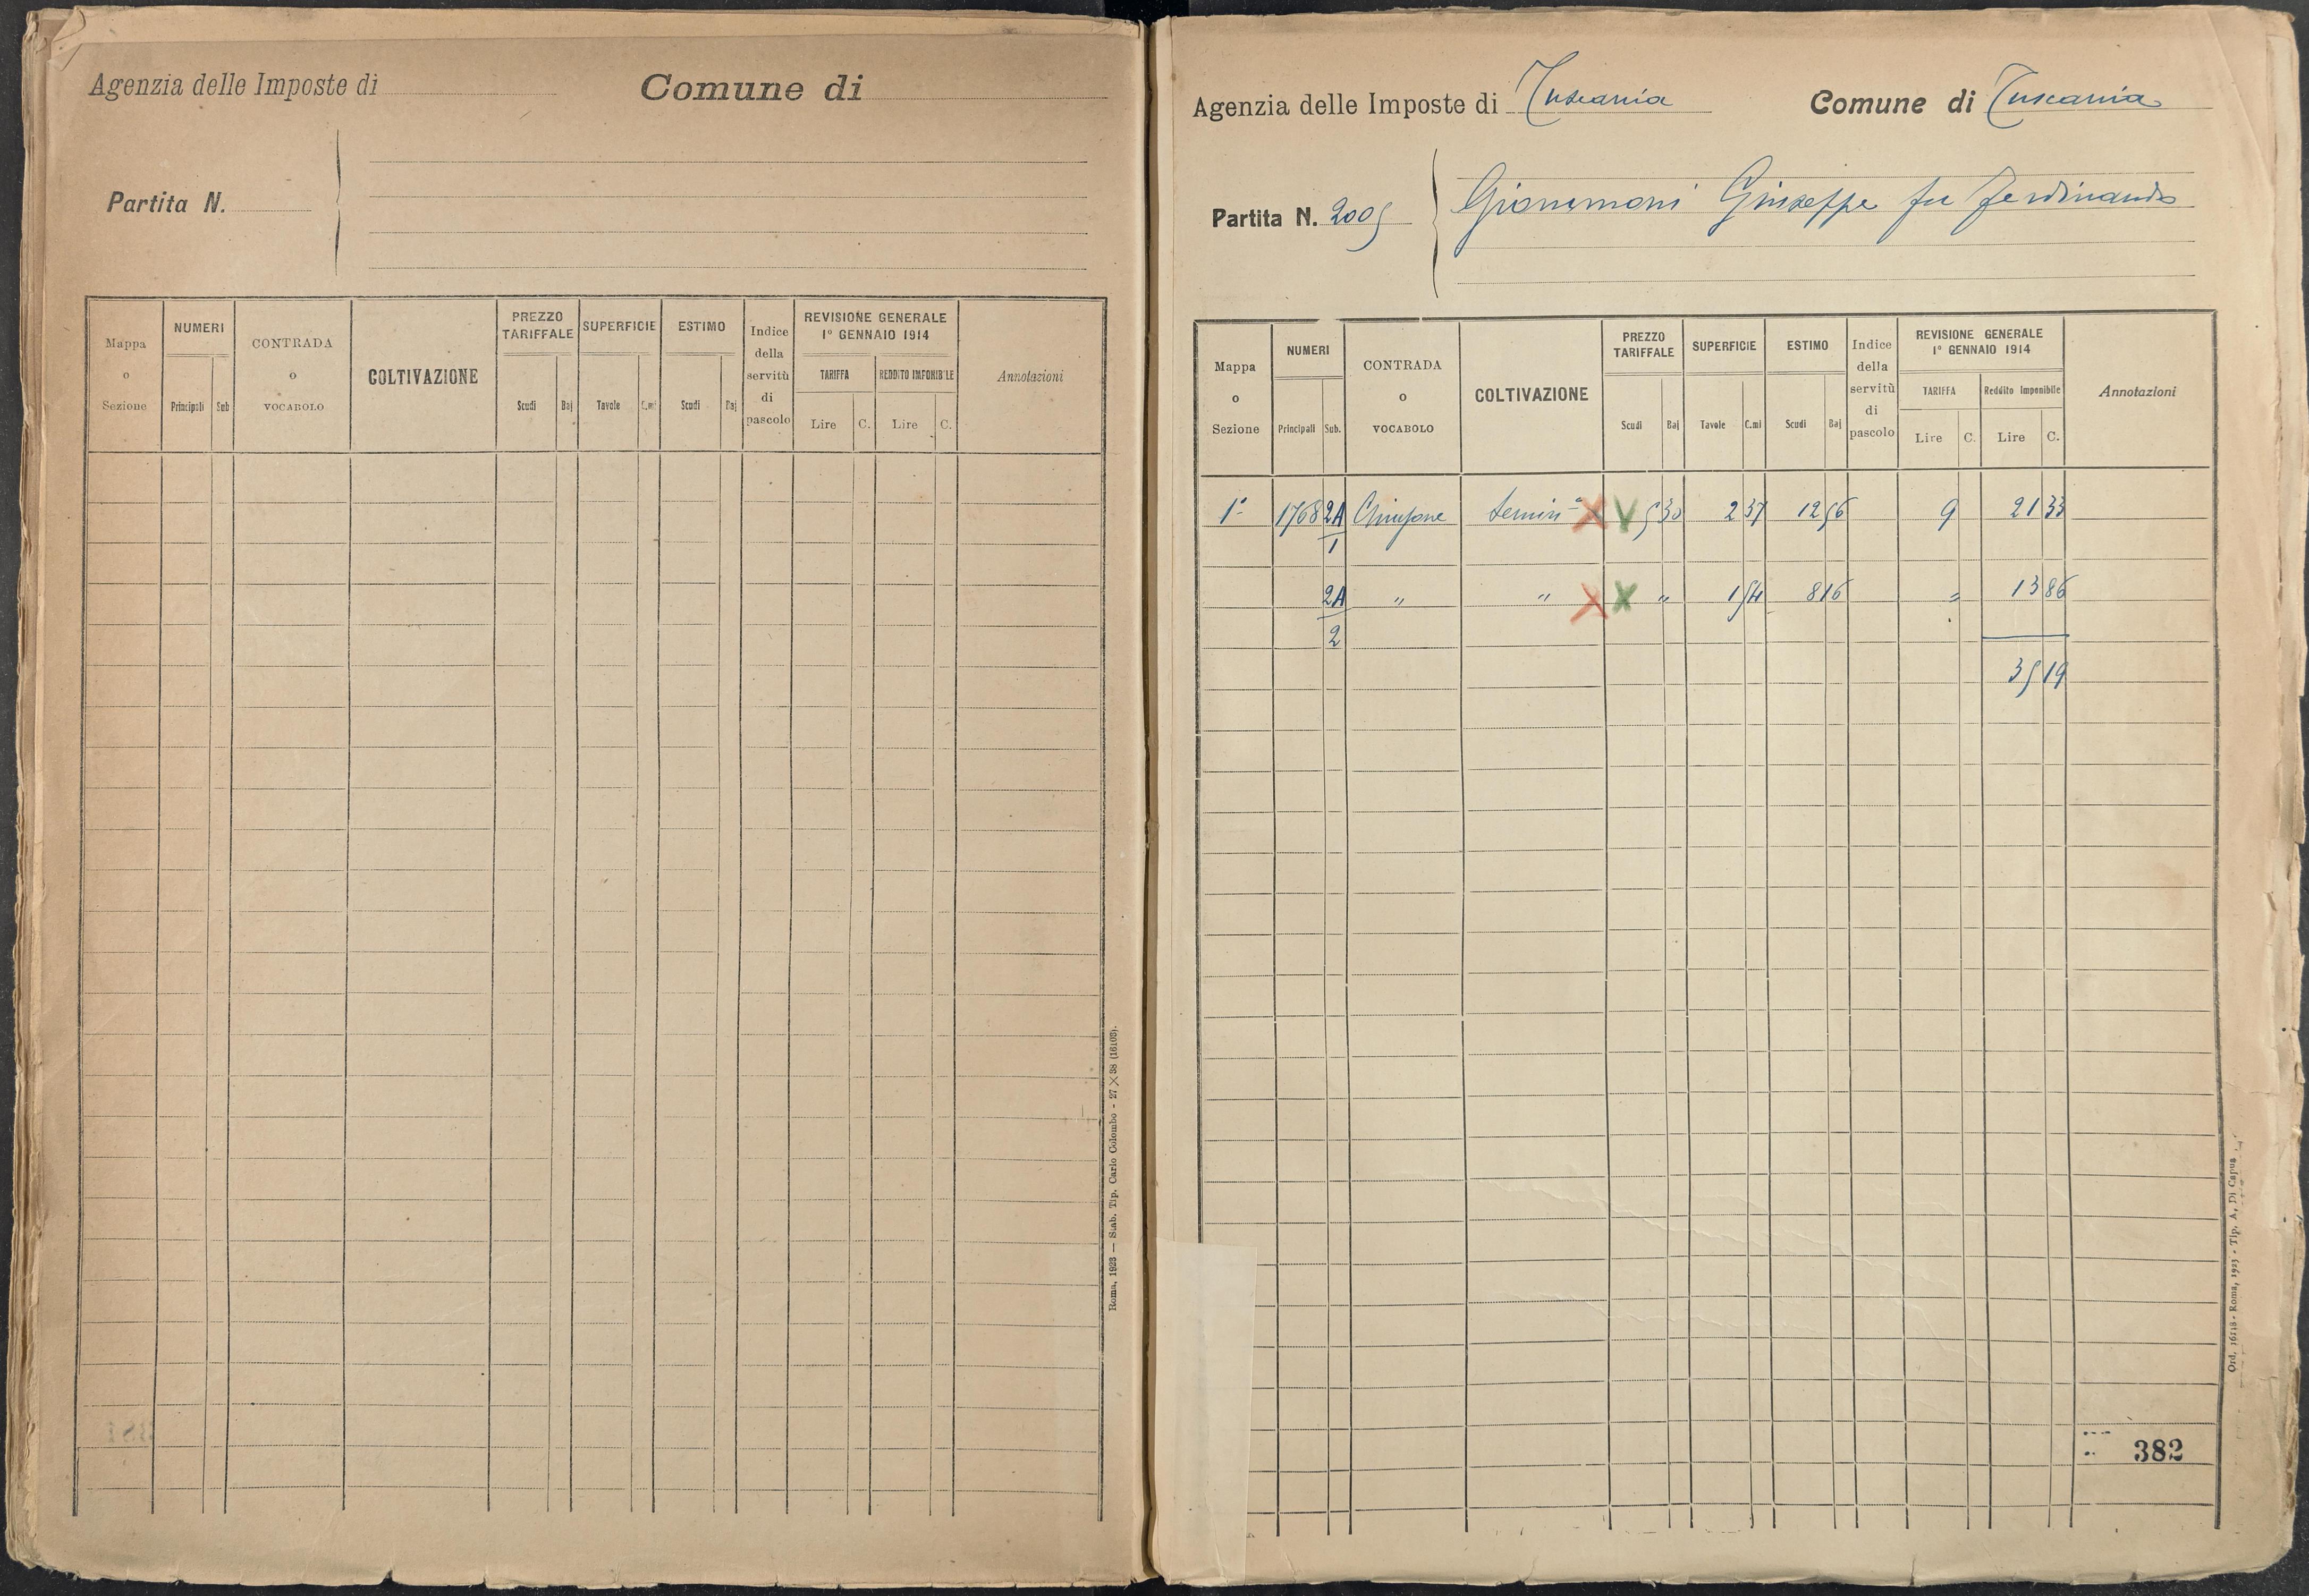 Agenzia delle Imposte di
Comune di
Partita N.
Mappa o Sezione
NUMERI
Principali Sub
CONTRADA o VOCABOLO
COLTIVAZIONE
PREZZO TARIFFALE
Scudi Baj
SUPERFICIE
Tavole C.mi
ESTIMO
Scudi Baj
Indice della servitù di pascolo
REVISIONE GENERALE
1° GENNAIO 1914
TARIFFA
REDDITO IMPONIBILE
Lire C. Lire C.
Annotazioni
Roma, 1923 — Stab. Tip. Carlo Colombo - 27 X 38 (16103).
Agenzia delle Imposte di Tuscania
Comune di Tuscania
Partita N. 2005
Gionnmoni Giuseppe fu Ferdinando
Mappa o Sezione
NUMERI
Principali Sub.
CONTRADA o VOCABOLO
COLTIVAZIONE
PREZZO TARIFFALE
Scudi Baj
SUPERFICIE
Tavole C.mi
ESTIMO
Scudi Baj
Indice della servitù di pascolo
REVISIONE GENERALE
1° GENNAIO 1914
TARIFFA
Reddito Imponibile
Lire C. Lire C.
Annotazioni
1ª 1768 2A/1 5 30 2 37 12 56 9 21 33
2A/2 " " " 1 54 8 16 = 13 86
35 19
382
Ord. 16518 - Roma, 1923 - Tip. A. Di Capua